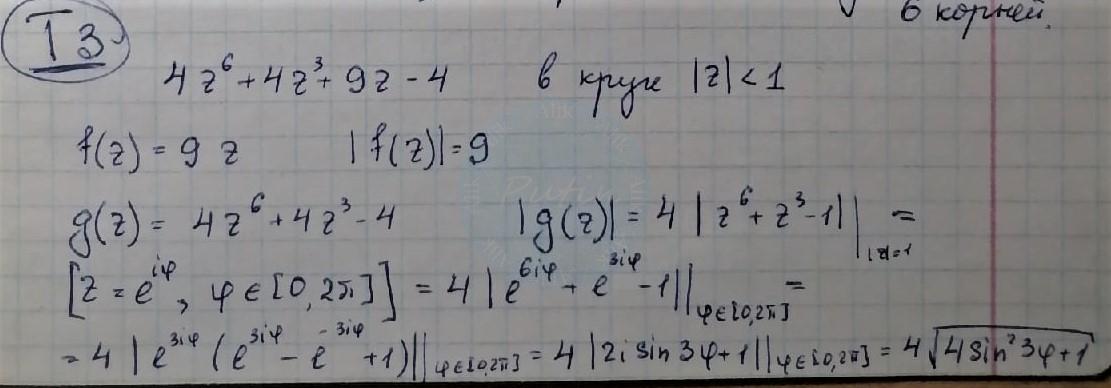 6 корней.
T3
4z⁶+4z³+9z-4 в круге |z|<1
f(z) = 9z |f(z)|=9
g(z) = 4z⁶+4z³-4 |g(z)| = 4|z⁶+z³-1||_{|z|=1} =
[z=e^{iφ}, φ∈[0,2π]] = 4|e^{6iφ}+e^{3iφ}-1||_{φ∈[0,2π]} =
= 4|e^{3iφ}(e^{3iφ}-e^{-3iφ}+1)||_{φ∈[0,2π]} = 4|2i sin3φ+1||_{φ∈[0,2π]} = 4√(4sin²3φ+1)